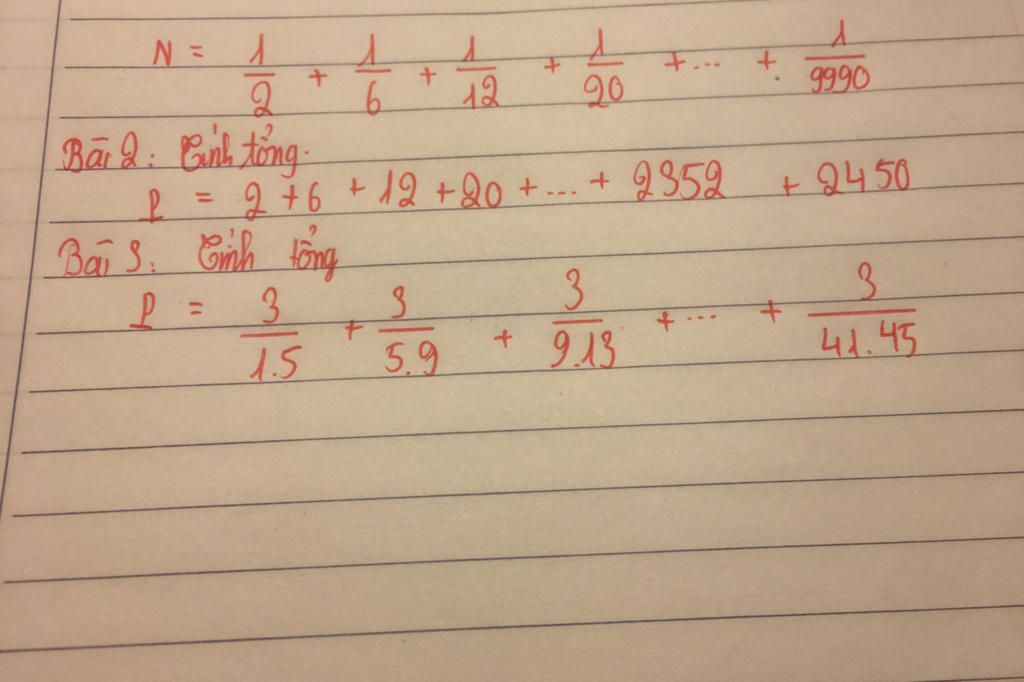 N = 1/2 + 1/6 + 1/12 + 1/20 + ... + 1/9990
Bài 2: Tính tổng.
P = 2 + 6 + 12 + 20 + ... + 2352 + 2450
Bài 3: Tính tổng
P = 3/1.5 + 3/5.9 + 3/9.13 + ... + 3/41.45